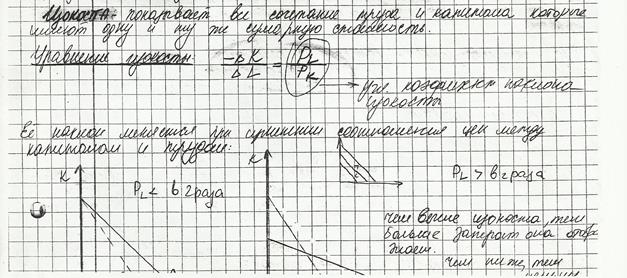 Изокоста - показывает все сочетание труда и капитала которые
имеют одну и ту же суммарную стоимость.
Уравнение изокосты: -ΔK/ΔL = PL/PK
угл. коэффициент наклона
изокосты
Её наклон меняется при изменении соотношения цен между
капиталом и трудом:
K
K
PL < в 2 раза
PL > в 2 раза
чем выше изокоста, тем
больше затрат она отобр
жает.
чем ниже, тем